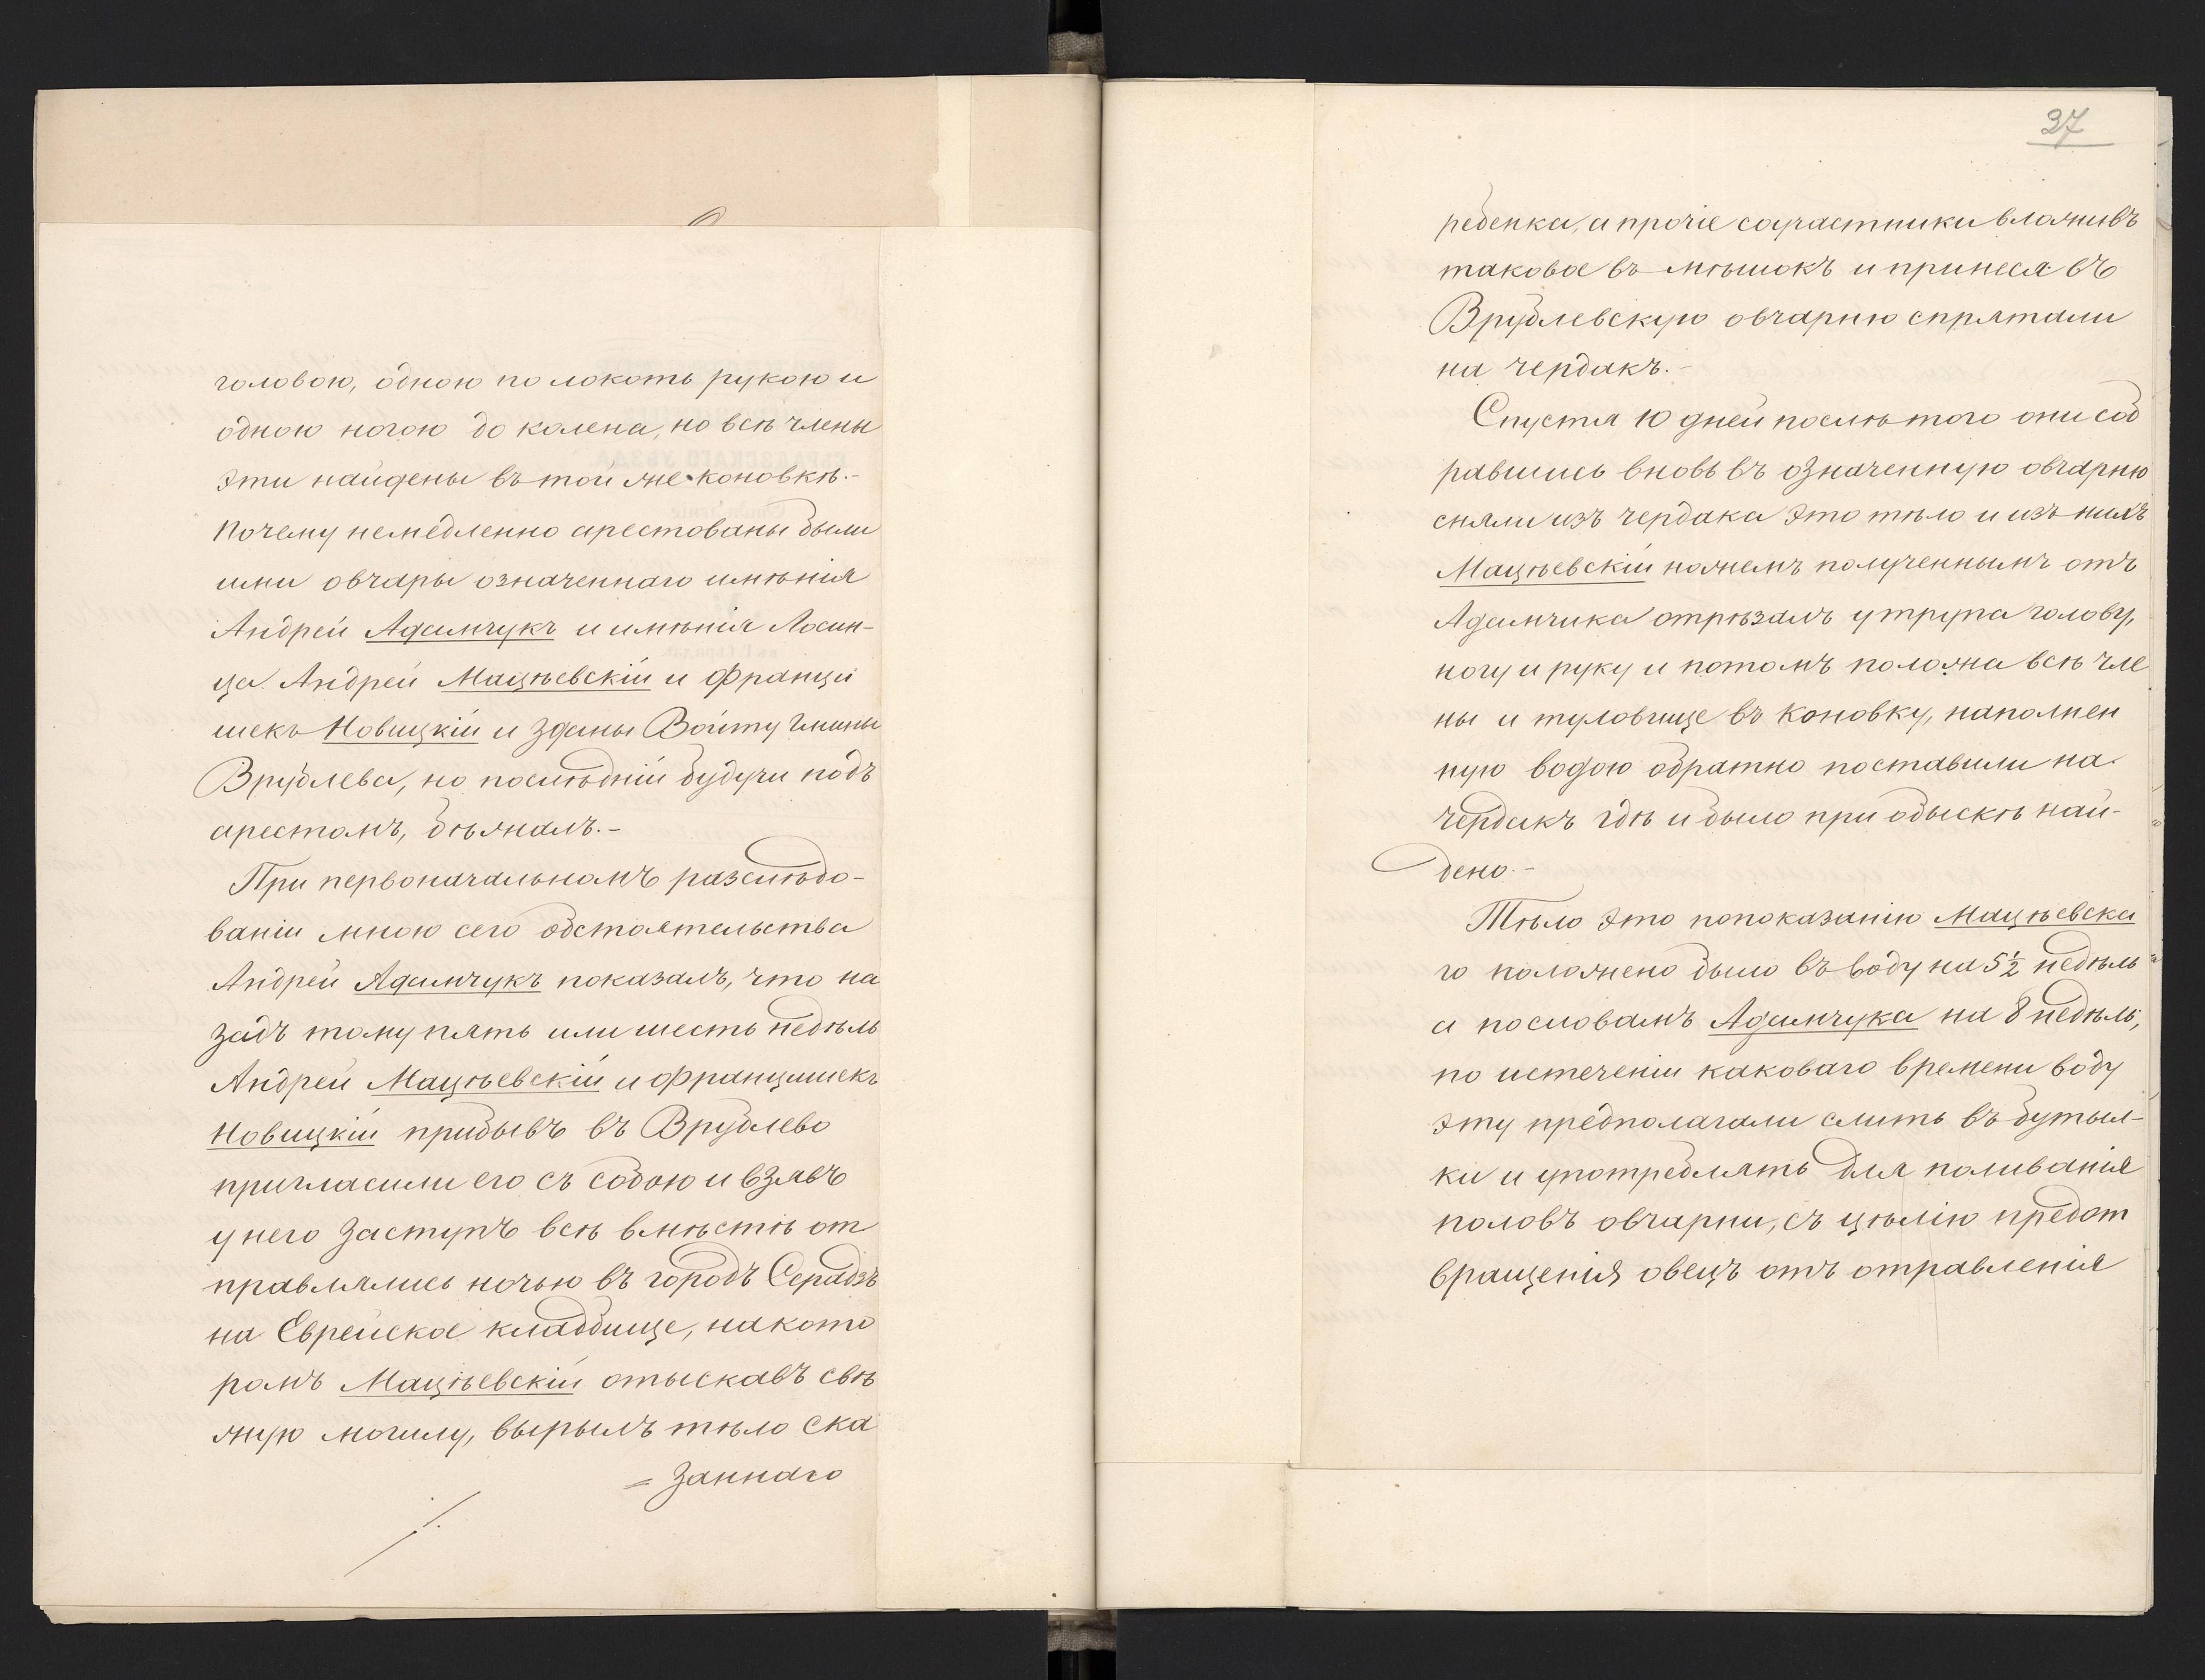 головою, одною по локоть рукою и
одною ногою до колена, но всѣ члены
эти найдены въ той же коновкѣ.-
Почему немедленно арестованы были
ими овчары означеннаго имѣнія
Андрей Адамчукъ и имѣнія Лосин-
ца Андрей Мацѣевскій и Франци
шекъ Новицкій и зданы Войту Гмины
Врублева, но послѣдній будучи подъ
арестомъ, бѣжалъ.-
При первоначальномъ разслѣдо-
ваніи мною сего обстоятельства
Андрей Адамчукъ показалъ, что на
задъ тому пять или шесть недѣль
Андрей Мацѣевскій и Францишекъ
Новицкій прибывъ въ Врублево
пригласили его съ собою и взявъ
у него заступъ всѣ вмѣстѣ от
правлялись ночью въ городъ Серадзъ
на Еврейское кладбище, на кото
ромъ Мацѣевскій отыскавъ свѣ
жую могилу, вырылъ тѣло ска
=заннаго
37
ребенка, а прочіе соучастники вложивъ
таковое въ мѣшокъ и принеся въ
Врублевскую овчарню спрятали
на чердакъ.-
Спустя 10 дней послѣ того они соб
равшись вновь въ означенную овчарню
сняли изъ чердака это тѣло и изъ нихъ
Мацѣевскій ножемъ полученнымъ отъ
Адамчика отрѣзалъ у трупа голову,
ногу и руку и потомъ положа всѣ чле
ны и туловище въ коновку, наполнен
ную водою обратно поставили на
чердакъ гдѣ и было при обыскѣ най-
дено.-
Тѣло это по показанію Мацѣевска
го положено было въ воду на 5½ недѣль
а по словамъ Адамчука на 8 недѣль,
по истеченіи каковаго времени воду
эту предполагали слить въ бутыл-
ки и употреблять для поливанія
половъ овчарни, съ цѣлію предот
вращенія овецъ отъ отравленія